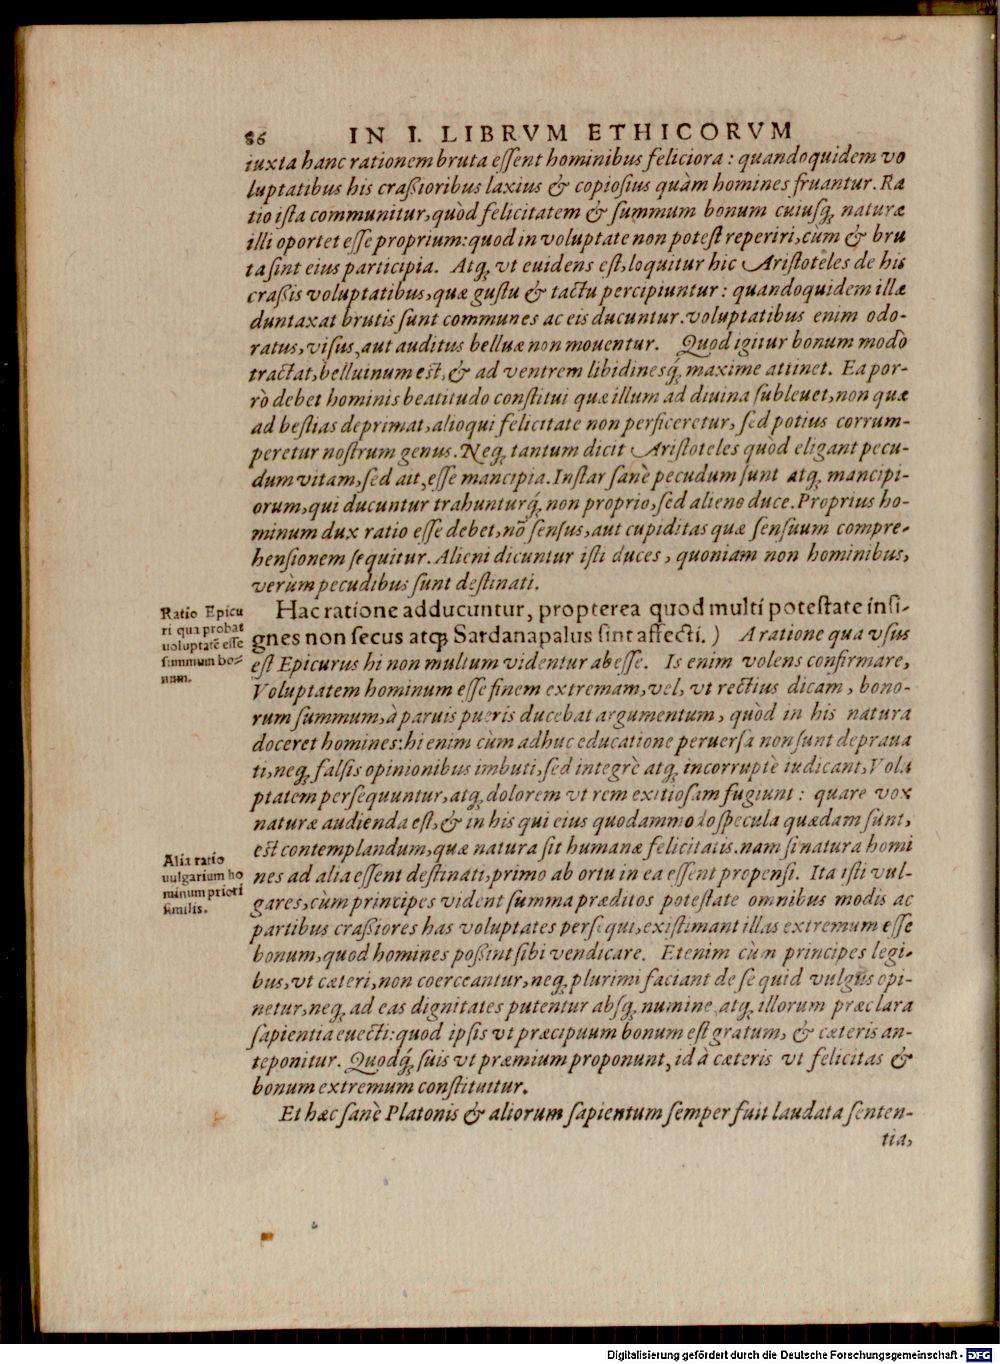 86 IN I. LIBRVM ETHICORVM
iuxta hanc rationem bruta eſſent hominibus feliciora: quandoquidem vo
luptatibus his craſsioribus laxius & copioſius quàm homines fruantur. Ra
tio iſta communitur, quòd felicitatem & ſummum bonum cuiuſq; naturæ
illi oportet eſſe proprium: quod in voluptate non poteſt reperiri, cùm & bru
ta ſint eius participia. Atq; vt euidens eſt, loquitur hic Ariſtoteles de his
craſsis voluptatibus, quæ guſtu & tactu percipiuntur: quandoquidem illæ
duntaxat brutis ſunt communes ac eis ducuntur. voluptatibus enim odo-
ratus, viſus, aut auditus belluæ non mouentur. Quod igitur bonum modò
tractat, belluinum est, & ad ventrem libidinesq́; maxime attinet. Ea por-
rò debet hominis beatitudo conſtitui quæ illum ad diuina ſubleuet, non quæ
ad beſtias deprimat, alioqui felicitate non perficeretur, ſed potius corrum-
peretur noſtrum genus. Neq; tantum dicit Ariſtoteles quòd eligant pecu-
dum vitam, ſed ait, eſſe mancipia. Inſtar ſanè pecudum ſunt atq; mancipi-
orum, qui ducuntur trahunturq́; non proprio, ſed alieno duce. Proprius ho-
minum dux ratio eſſe debet, nō ſenſus, aut cupiditas quæ ſenſuum compre-
henſionem ſequitur. Alieni dicuntur iſti duces, quoniam non hominibus,
verùm pecudibus ſunt deſtinati.
Ratio Epicu
ri qua probat
uoluptatē eſſe
ſummum bo-
num.
Hac ratione adducuntur, propterea quod multi poteſtate inſi-
gnes non ſecus atq; Sardanapalus ſint affecti.) A ratione qua vſus
eſt Epicurus hi non multum videntur abeſſe. Is enim volens confirmare,
Voluptatem hominum eſſe finem extremam, vel, vt rectius dicam, bono-
rum ſummum, à paruis pueris ducebat argumentum, quòd in his natura
doceret homines: hi enim cùm adhuc educatione peruerſa non ſunt depraua
ti, neq; falſis opinionibus imbuti, ſed integrè atq; incorruptè iudicant, Volu
ptatem perſequuntur, atq; dolorem vt rem exitioſam fugiunt: quare vox
naturæ audienda eſt, & in his qui eius quodammodo ſpecula quædam ſunt,
est contemplandum, quæ natura ſit humanæ felicitatis. nam ſi natura homi
Alia ratio
uulgarium ho
minum priori
ſimilis.
nes ad alia eſſent deſtinati, primo ab ortu in ea eſſent propenſi. Ita iſti vul-
gares, cùm principes vident ſumma præditos poteſtate omnibus modis ac
partibus craſsiores has voluptates perſequi, exiſtimant illas extremum eſſe
bonum, quod homines poſsint ſibi vendicare. Etenim cùm principes legi-
bus, vt cæteri, non coerceantur, neq; plurimi faciant de ſe quid vulgus opi-
netur, neq; ad eas dignitates putentur abſq; numine atq; illorum præclara
ſapientia euecti: quod ipſis vt præcipuum bonum eſt gratum, & cæteris an-
teponitur. Quodq́; ſuis vt præmium proponunt, id à cæteris vt felicitas &
bonum extremum conſtituitur.
Et hæc ſanè Platonis & aliorum ſapientum ſemper fuit laudata ſenten-
tia,
Digitalisierung gefördert durch die Deutsche Forschungsgemeinschaft - DFG